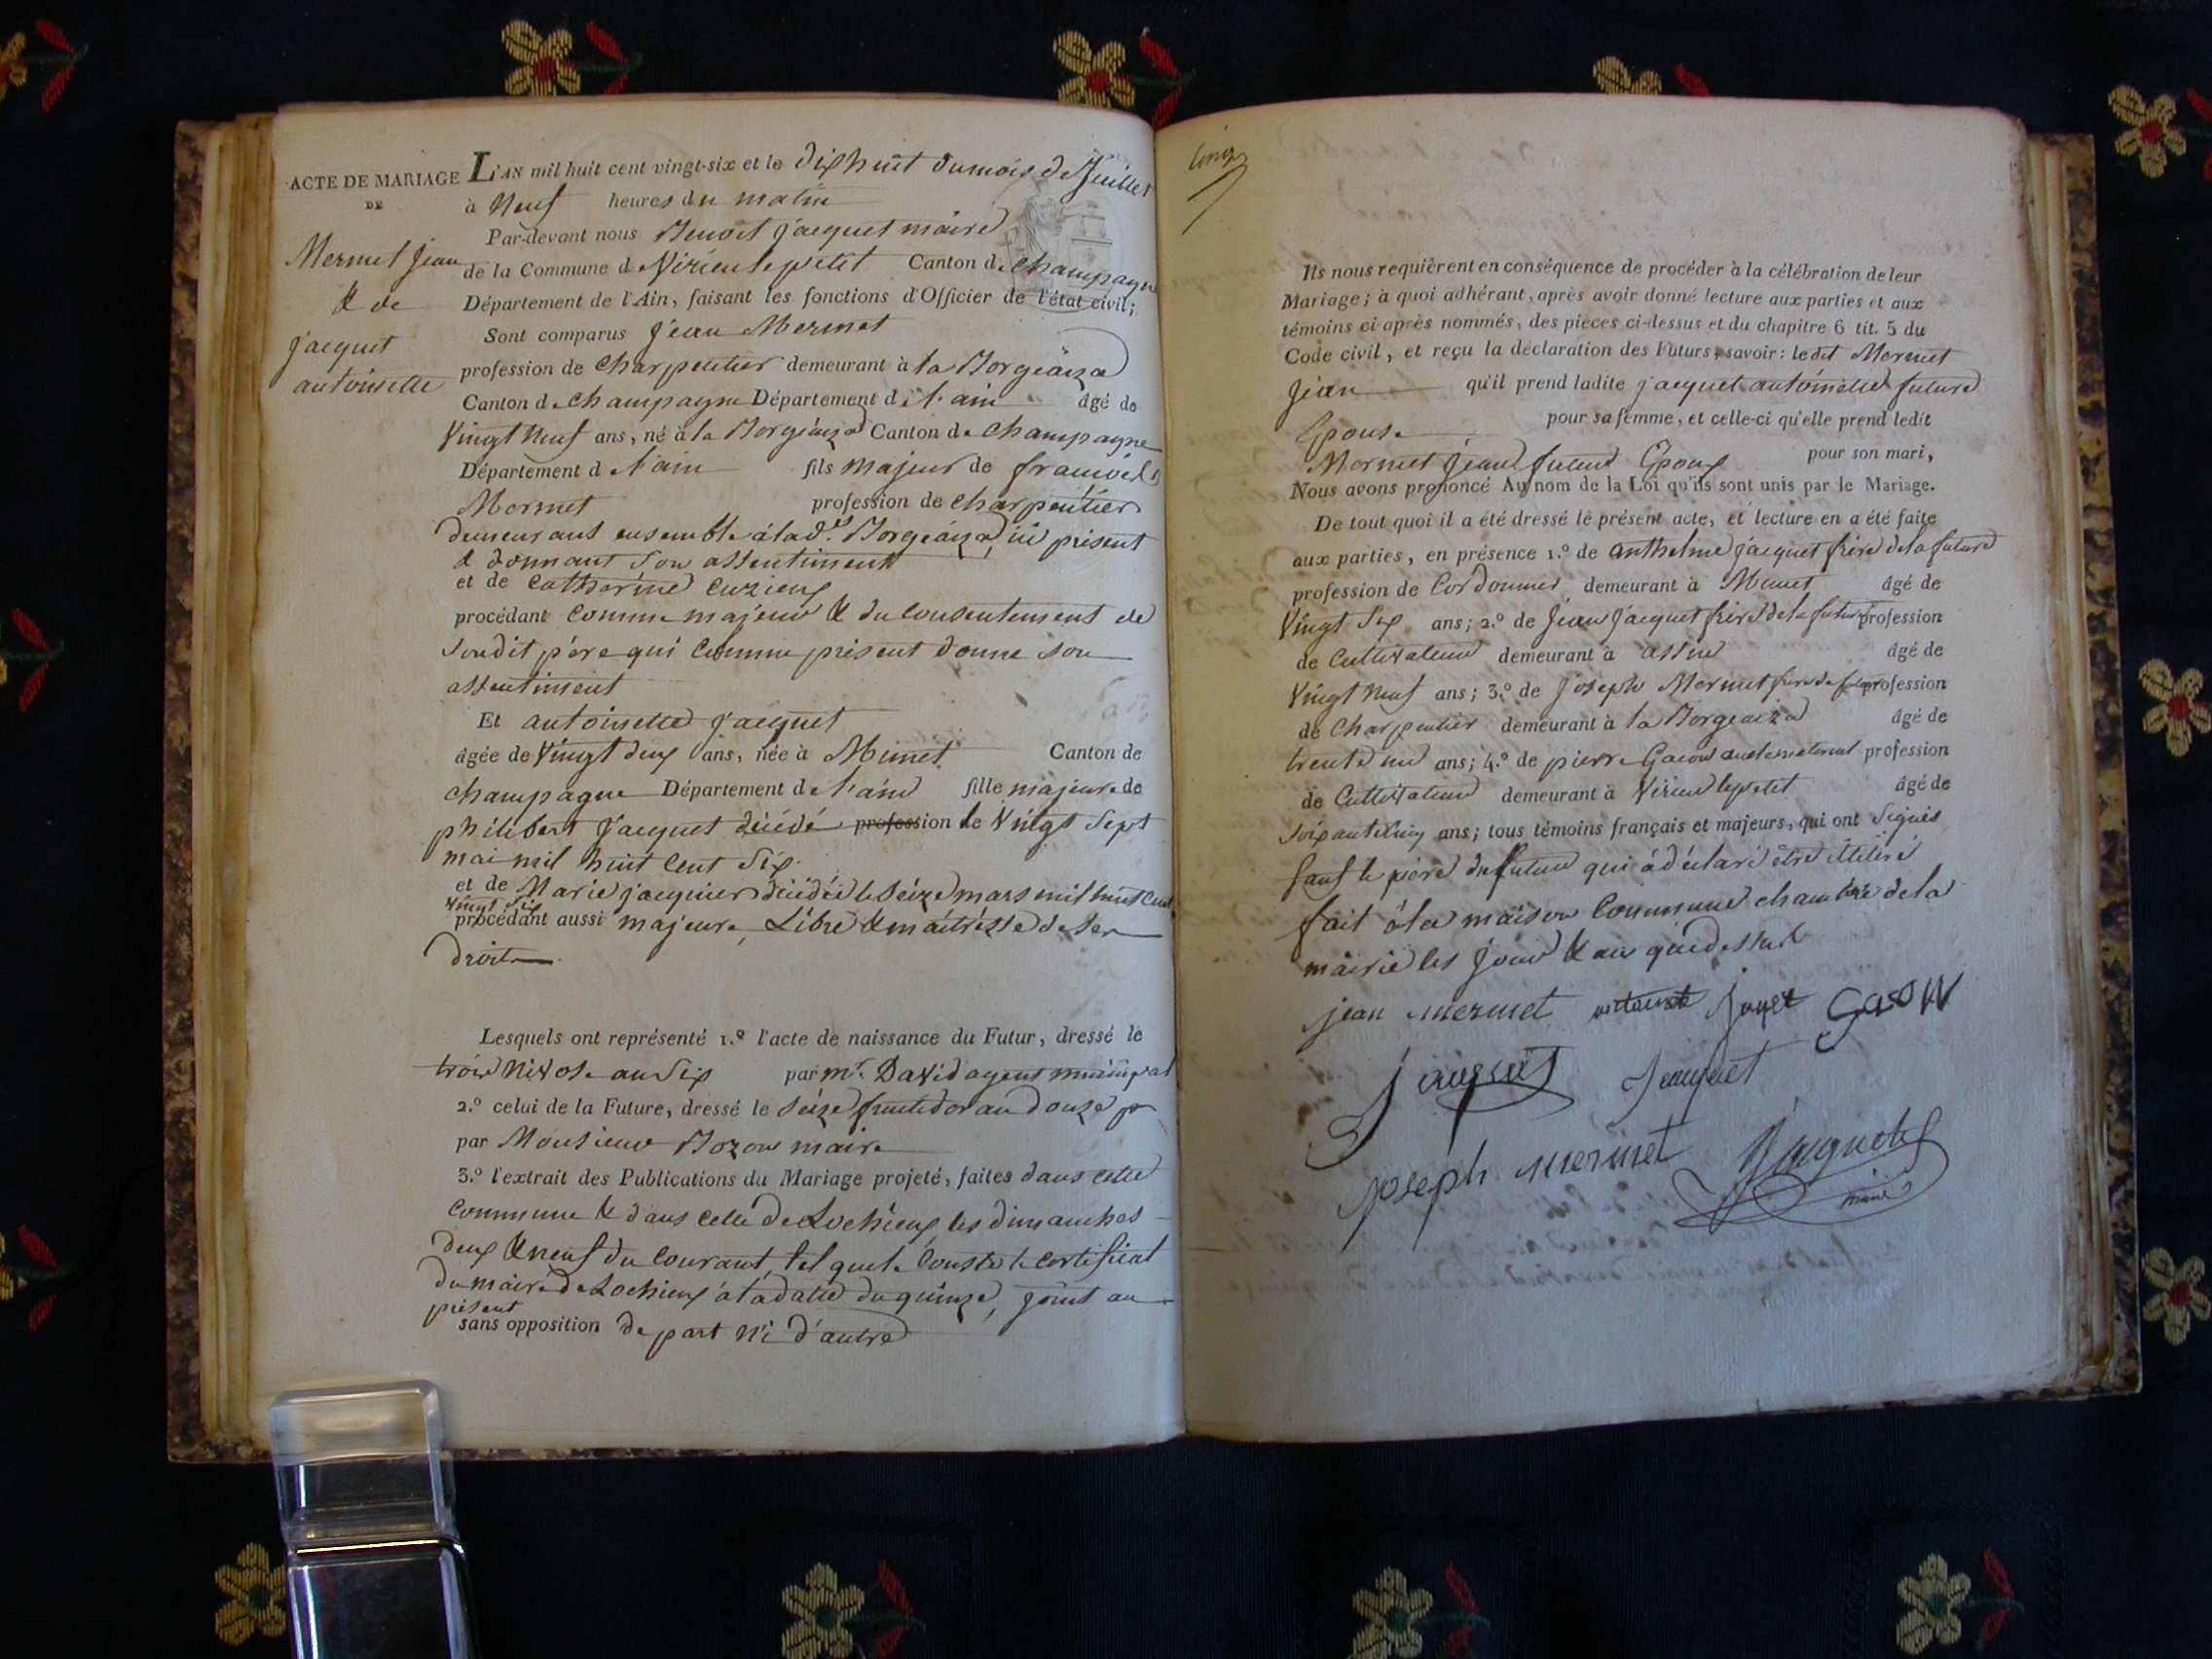 ACTE DE MARIAGE
DE
Mermet Jean
& de
jacquet
antoinette
L'AN mil huit cent vingt-six et le dixhuit du mois de Juillet
à Neuf heures du matin
Par-devant nous Benoit jacquet maire
de la Commune de Virieu le petit Canton de champagne
Département de l'Ain, faisant les fonctions d'Officier de l'état civil;
Sont comparus Jean Mermet
profession de charpentier demeurant à la
Canton de champagne Département de l'ain âgé de
Vingt Neuf ans, né à la Canton de champagne
Département de l'ain fils majeur de francois
Mermet profession de charpentier
demeurant ensemble à lad. ici présent
& donnant son assentiment
et de Catherine Cuzieux
procédant comme majeur & du consentement de
son dit père qui comme présent donne son
assentiment
Et antoinette jacquet
âgée de Vingt deux ans, née à Munet Canton de
champagne Département de l'ain fille majeure de
philibert jacquet décédé profession le Vingt Sept
mai mil huit cent Six
et de Marie jacquier décédée le Seize mars mil huit cent
Vingt Six
procédant aussi majeure, Libre & maîtresse de ses
droits
Lesquels ont représenté 1.º l'acte de naissance du Futur, dressé le
trois Nivose an Six par mr. David agent municipal
2.º celui de la Future, dressé le Seize fructidor an douze
par Monsieur Bozon maire
3.º l'extrait des Publications du Mariage projeté, faites dans cette
Commune & dans celle de Lochieux les dimanches
deux & neuf du courant, tel que le conste le certificat
du maire de Lochieux à la date du quinze, joint au
présent
sans opposition de part Ni d'autre
Ils nous requièrent en conséquence de procéder à la célébration de leur
Mariage; à quoi adhérant, après avoir donné lecture aux parties et aux
témoins ci-après nommés, des pièces ci-dessus et du chapitre 6 tit. 5 du
Code civil, et reçu la déclaration des Futurs, savoir: le dit Mermet
Jean qu'il prend ladite jacquet antoinette future
Epouse pour sa femme, et celle-ci qu'elle prend ledit
Mermet Jean futur Epoux pour son mari,
Nous avons prononcé Au nom de la Loi qu'ils sont unis par le Mariage.
De tout quoi il a été dressé le présent acte, et lecture en a été faite
aux parties, en présence 1.º de anthelme jacquet frère de la future
profession de Cordonnier demeurant à Munet âgé de
Vingt Six ans; 2.º de Jean Jacquet frère de la future profession
de Cultivateur demeurant à assin âgé de
Vingt Neuf ans; 3.º de Joseph Mermet frère du futur profession
de Charpentier demeurant à la âgé de
trente un ans; 4.º de pierre Gacon oncle maternel profession
de Cultivateur demeurant à Virieu le petit âgé de
Soixante cinq ans; tous témoins français et majeurs, qui ont Signés
Sauf le père du futur qui a déclaré être illitéré
fait à la maison commune chambre de la
mairie les jour & an que dessus
jean mermet Gacon
jacquet Jacquet
joseph mermet Jacquet
maire